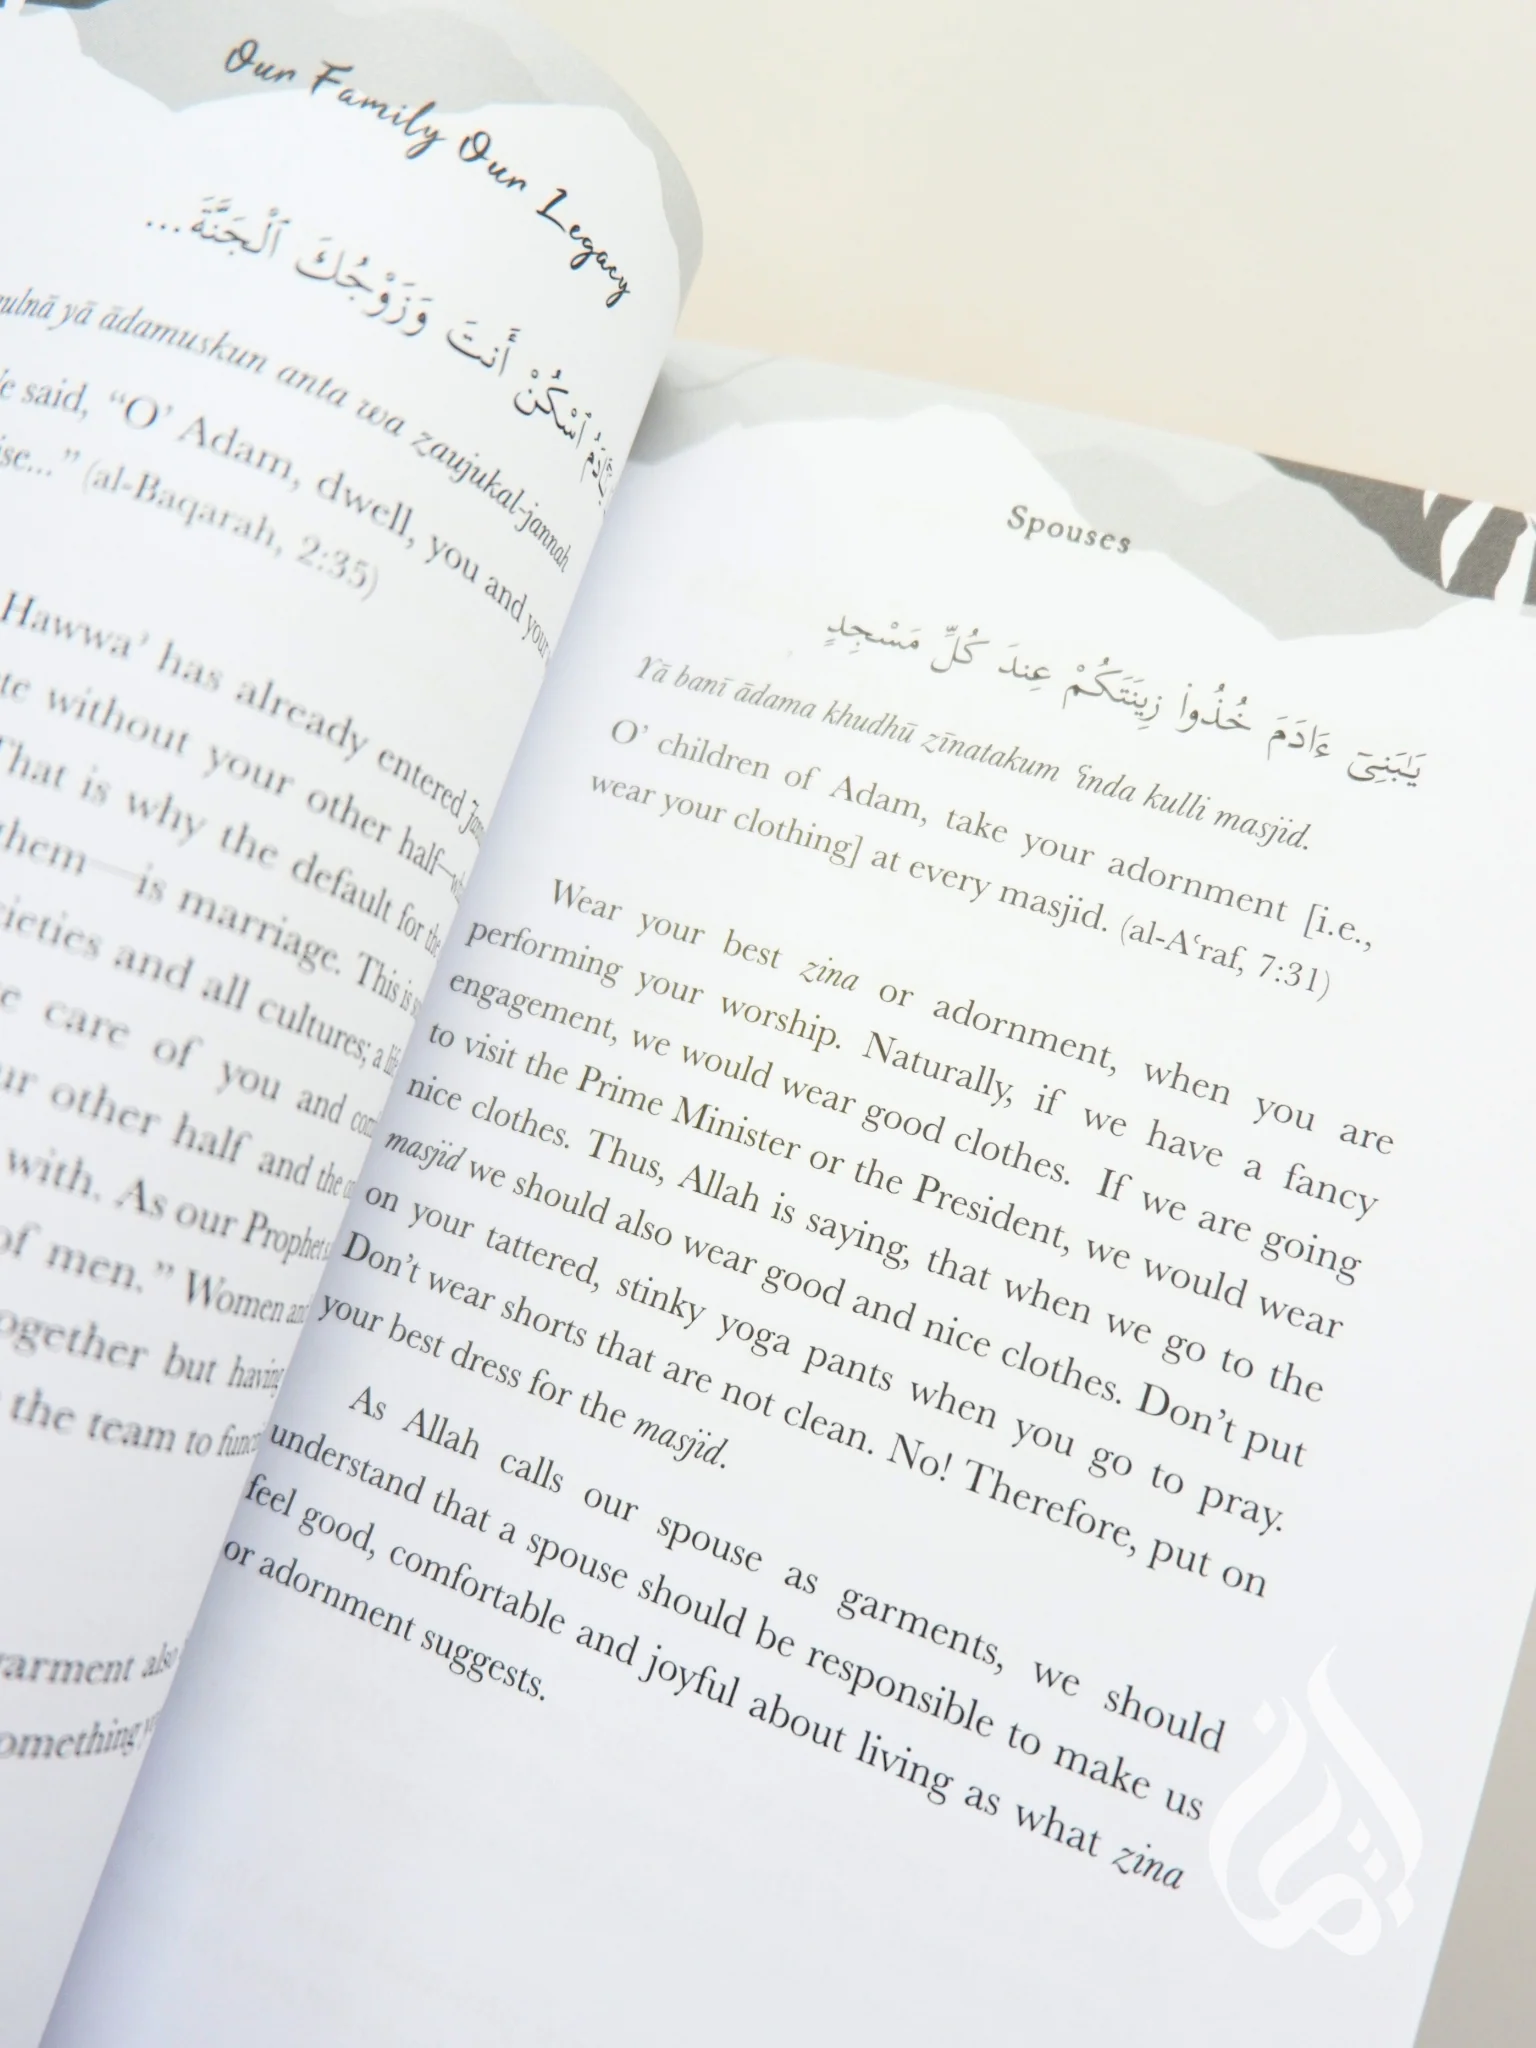 Our Family Our Legacy
ٱسْكُنْ أَنتَ وَزَوْجُكَ ٱلْجَنَّةَ...
yā ādamuskun anta wa zaujukal-jannah
said, “O’ Adam, dwell, you and your
(al-Baqarah, 2:35)
Hawwa’ has already entered
without your other half—
That is why the default for the
them—is marriage. This is
and all cultures; a life
care of you and
other half and the
with. As our Prophet
of men.” Women and
together but having
the team to
also
something
Spouses
يَٰبَنِىٓ ءَادَمَ خُذُوا۟ زِينَتَكُمْ عِندَ كُلِّ مَسْجِدٍ
Yā banī ādama khudhū zīnatakum ʿinda kulli masjid.
O’ children of Adam, take your adornment [i.e.,
wear your clothing] at every masjid. (al-A‘raf, 7:31)
Wear your best zina or adornment, when you are
performing your worship. Naturally, if we have a fancy
engagement, we would wear good clothes. If we are going
to visit the Prime Minister or the President, we would wear
nice clothes. Thus, Allah is saying, that when we go to the
masjid we should also wear good and nice clothes. Don’t put
on your tattered, stinky yoga pants when you go to pray.
Don’t wear shorts that are not clean. No! Therefore, put on
your best dress for the masjid.
As Allah calls our spouse as garments, we should
understand that a spouse should be responsible to make us
feel good, comfortable and joyful about living as what zina
or adornment suggests.